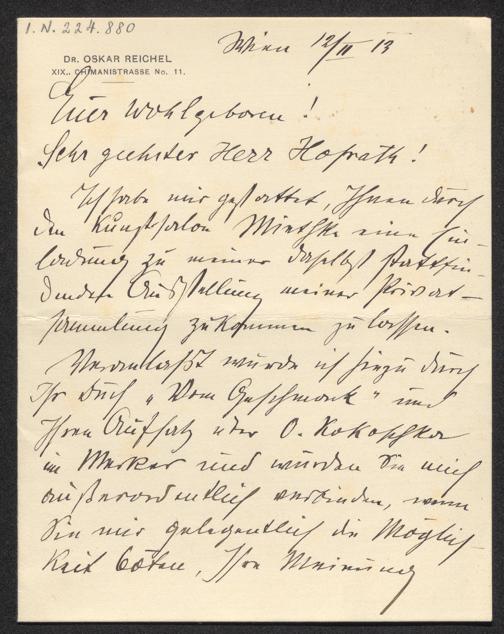 I.N. 224.880
DR. OSKAR REICHEL
XIX., CHIMANISTRASSE No. 11.
Wien 12/II 13
Euer Wohlgeboren!
Sehr geehrter Herr Hofrath!
Ich habe mir gestattet, Ihnen durch
den Kunstsalon Miethke eine Ein-
ladung zu meiner daselbst stattfin-
denden Ausstellung meiner Privat-
sammlung zukommen zu lassen.
Veranlaßt wurde ich hiezu durch
Ihr Buch „Vom Geschmack" und
Ihren Aufsatz über O. Kokoschka
im Merker und würden Sie mich
außerordentlich verbinden, wenn
Sie mir gelegentlich die Möglich-
keit böten, Ihre Meinung